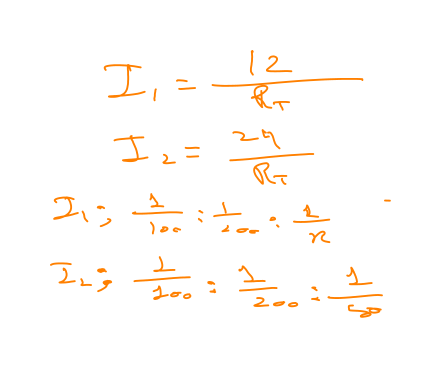 I₁ = 12/R_T
I₂ = 24/R_T
I₁; 1/100 : 1/200 : 1/x
I₂; 1/100 : 1/200 : 1/50